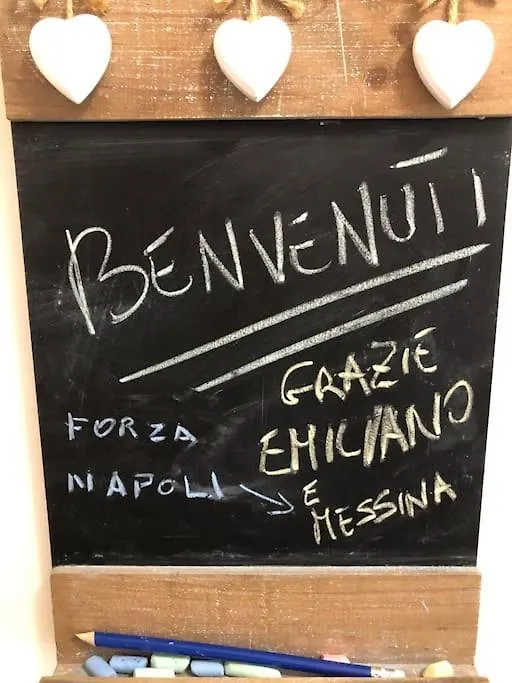 BENVENUTI
GRAZIE
EMILIANO
E
MESSINA
FORZA
NAPOLI